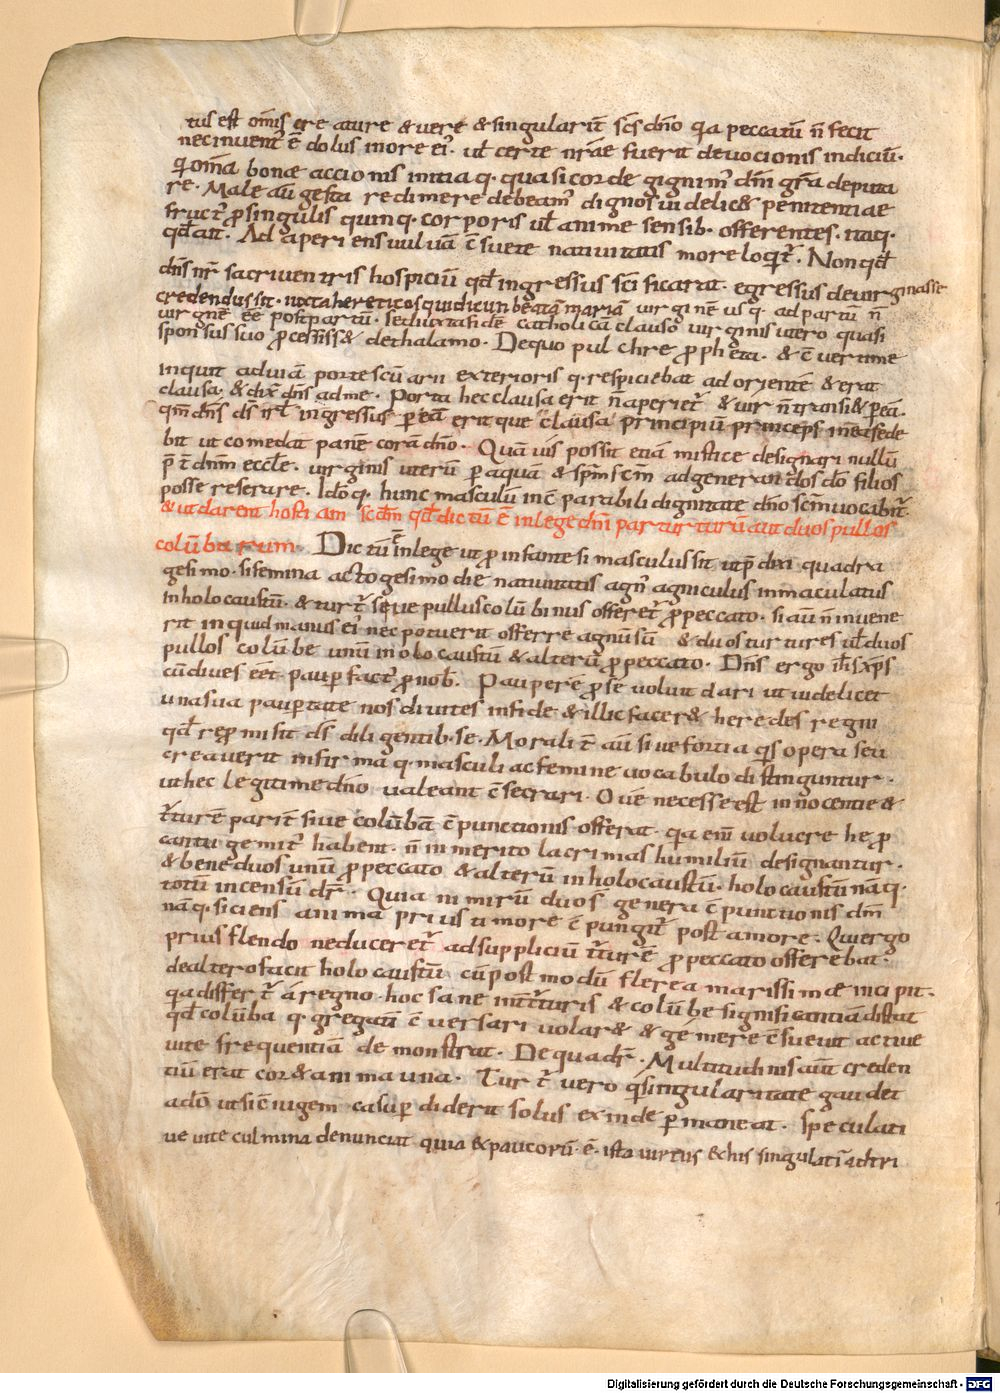 tus est om̅is creature & vere & singularit̅ sc̅s dn̅o q̇a peccatu̅ n̅ fecit
nec invent᷒ e̅ dolus in ore ei᷒. ut̅ certe nr̅ae fuerit devocionis indiciu̅.
q̇ om̅a bonae accionis initia q. quasi corde gignim᷒ dn̅i gr̅a deputa
re. Male au̅ gesta redimere debeam᷒ dignos videlic& penitentiae
fruct᷒ p̱ singulis quinq. corporis ut̅ anime sensib. offerentes. itaq.
qd̅ ait. Ad aperiens vulva̅ c̅suete nativitatis more loq̇t᷒. Non qd̅
dn̅s nr̅ sacri ventris hospiciu̅ qd̅ ingressus sc̅ificarat. egressus devirginasse
credendus sit. iuxta hereticos qui dicun beata̅ maria̅ virgine̅ usq. ad partu̅ n̅
virgine̅ e̅e post partu̅. sed iuxta fide̅ catholica̅ clauso virginis utero quasi
sponsus suo p̱cessiss& de thalamo. De quo pulchre p̱pheta. & c̅vertit me
inquit ad via̅ porte sc̅uarii exterioris q. respiciebat ad oriente̅ & erat
clausa. & dix̅ dn̅s ad me. Porta hec clausa erit n̅ aperiet᷒ & vir n̅ transi& p̱ ea̅.
qm̅ dn̅s ds̅ irl̅ ingressus p̱ ea̅ erit que clausa principiu̅ princeps in ea sede
bit ut comedat pane̅ cora̅ dn̅o. Qua̅vis possit etia̅ mistice designari nullu̅
p̅t̅ dn̅m eccl̅e. virginis uteru̅ p̱ aqua̅ & sp̅m sc̅m ad generan̅dos d̅o filios
posse reserare. Id̅o q. hunc masculu̅ inc̅parabili dignitate dn̅o sc̅m vocabit᷒.
& ut darent hostiam sc̅dm qd̅ dictu̅ e̅ in lege dn̅i par turturu̅ aut duos pullos
colu̅barum. Dictu̅ e̅ in lege ut p̱ infante si masculus sit ut p̅dixi quadra
gesimo. si femina octogesimo die nativitatis agn᷒ agniculus inmaculatus
in holocaustu̅. & turt᷒ seve pullus colu̅binus offeret᷒ p̱ peccato. si au̅ n̅ invene
rit inquid manus ei᷒ nec potuerit offerre agnu̅ su̅ & duos turtures ut̅ duos
pullos colu̅be unu̅ in olocaustu̅ & alteru̅ p̱ peccato. Dn̅s ergo ih̅s xp̅s
cu̅ dives e̅et. paup̱ fact᷒ p̱ nob̅. Paupere̅ p̱ se voluit dari ut videlicet
una sua paup̱tate nos divites in fide & illic facer& heredes regni
qd̅ rep̱misit ds̅ diligentib. se. Moralit̅ au̅ sive fortia q̇s opera seu
creaverit infirma q. masculi ac femine vocabulo distinguntur.
ut hec legitime dn̅o valeant c̅secrari. Ove̅ necesse est innocentie &
t᷒ture̅ parit̅ sive colu̅ba̅ c̅punctionis offerat. q̇a eni̅ volucre he p̱
cantu gemit᷒ habent. n̅ inmerito lacrimas humiliu̅ designantur.
& bene duos unu̅ p̱ peccato & alteru̅ in holocaustu̅. holocaustu̅ naq.
totu̅ incensu̅ dr̅. Quia nimiru̅ duo s̅ genera c̅punctionis dm̅
na̅q. siciens anima prius timore c̅pungit᷒ post amore. Qui ergo
prius flendo ne duceret᷒ ad suppliciu̅ t᷒ture̅ p̱ peccato offerebat.
de altero facit holocaustu̅ cu̅ postmodu̅ flere amarissimae incipit.
q̇a differt᷒ a regno. hoc sane int̅ t᷒turis & colu̅be significantia̅ distat
qd̅ colu̅ba q. gregati̅ c̅versari volar& & gemere c̅suevit active
vite frequentia̅ demonstrat. De qua dr̅. Multitudinis aut̅ creden
tiu̅ erat cor & anima una. Turt᷒ vero q̇ singularitate gaudet
ado̅ ut si c̅iugem casu p̱diderit solus exinde p̱maneat. speculati
ve vite culmina denunciat quia & paucoru̅. e̅. ista virtus & his singulati̅
Digitalisierung gefördert durch die Deutsche Forschungsgemeinschaft - DFG